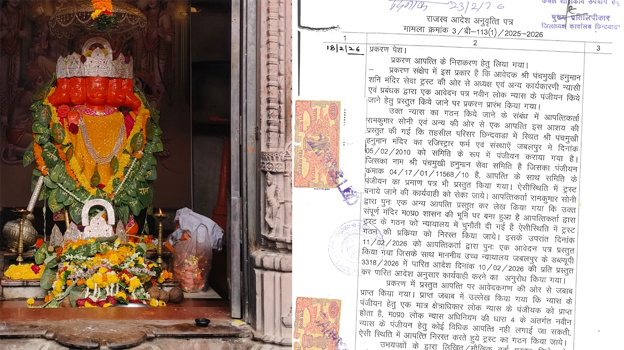 23/2/26
मुख्य प्रतिलिपिकार
जिलाध्यक्ष कार्यालय छिन्दवाड़ा
राजस्व आदेश अनुवृत्ति पत्र
मामला क्रमांक 3/बी-113(1)/2025-2026
1 2 3
18/2/26 प्रकरण पेश।
प्रकरण आपत्ति के निराकरण हेतु लिया गया।
प्रकरण संक्षेप में इस प्रकार है कि आवेदक श्री पंचमुखी हनुमान
शनि मंदिर सेवा ट्रस्ट की ओर से अध्यक्ष एवं अन्य कार्यकारणी न्यासी
एवं प्रबंधक द्वारा एक आवेदन पत्र नवीन लोक न्यास के पंजीयन किये
जाने हेतु प्रस्तुत किये जाने पर प्रकरण प्रारंभ किया गया।
उक्त न्यास का गठन किये जाने के संबंध में आपत्तिकर्ता
रामकुमार सोनी एवं अन्य की ओर से एक आपत्ति इस आशय की
प्रस्तुत की गई कि तहसील परिसर छिन्दवाड़ा में स्थित श्री पंचमुखी
हनुमान मंदिर का रजिस्ट्रार फर्म एवं संस्थाएँ जबलपुर में दिनांक
05/02/2010 को समिति के रूप में पंजीयन कराया गया है।
जिसका नाम श्री पंचमुखी हनुमान सेवा समिति है जिसका पंजीयन
क्रमांक 04/17/01/11568/10 है, आपत्ति के साथ समिति के
पंजीयन का प्रमाण पत्र भी प्रस्तुत किया गया। ऐसीस्थिति में ट्रस्ट
बनाये जाने की कार्यवाही को रोका जाये। आपत्तिकर्ता रामकुमार सोनी
द्वारा पुनः एक अन्य आपत्ति प्रस्तुत कर लेख किया गया कि उक्त
संपूर्ण मंदिर म0प्र0 शासन की भूमि पर बना हुआ है आपत्तिकर्ता द्वारा
ट्रस्ट के गठन को न्यायालय में चुनौती दी गई है ऐसीस्थिति में ट्रस्ट
गठन की प्रक्रिया को निरस्त किया जाये। इसके उपरांत दिनांक
11/02/2026 को आपत्तिकर्ता द्वारा पुनः एक आवेदन पत्र प्रस्तुत
किया गया जिसके साथ माननीय उच्च न्यायालय जबलपुर के डब्ल्यूपी
3318/2026 में पारित आदेश दिनांक 10/02/2026 की प्रति प्रस्तुत
कर पारित आदेश अनुसार कार्यवाही करने का अनुरोध किया गया।
प्रकरण में प्रस्तुत आपत्ति पर आवेदकगण की ओर से जवाब
प्राप्त किया गया। प्राप्त जवाब में उल्लेख किया गया कि न्यास के
पंजीयन हेतु एक मात्र क्षेत्राधिकार लोक न्यास के पंजीयक को प्राप्त
होता है, म0प्र0 लोक न्यास अधिनियम की धारा 4 के अंतर्गत नवीन
न्यास के पंजीयन हेतु कोई विधिक आपत्ति नही लगाई जा सकती,
ऐसी स्थिति में आपत्ति निरस्त करते हुये ट्रस्ट का गठन किया जाये।
उभयपक्षों के द्वारा लिखित/मौखिक